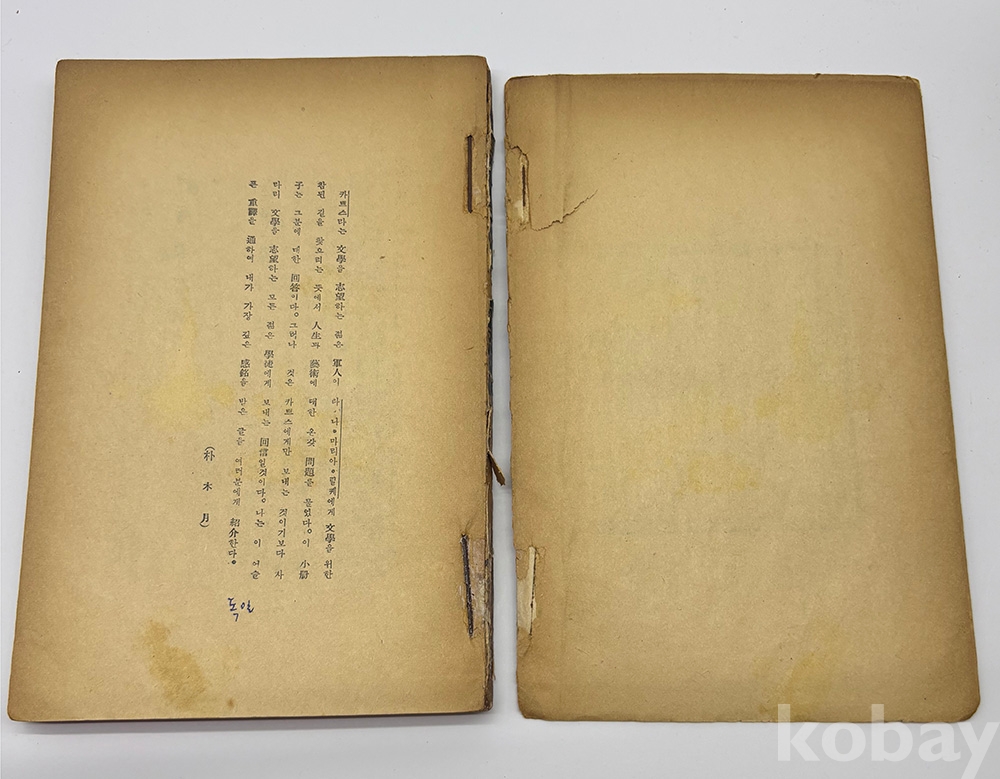 카프스라는 文學을 志望하는 젊은 軍人이 라·나·마리아·릴케에게 文學을 위한
참된 길을 찾으려는 뜻에서 人生과 藝術에 대한 온갖 問題를 물었다。이 小冊
子는 그분에 대한 回答이다。그러나 것은 카프스에게만 보내는 것이기보다 차
라리 文學을 志望하는 모든 젊은 學徒에게 보내는 回信일것이다。나는 이 어슬
픈 重譯을 通하여 내가 가장 깊은 感銘을 받은 글을 여러분에게 紹介한다。
(朴木月)
kobay